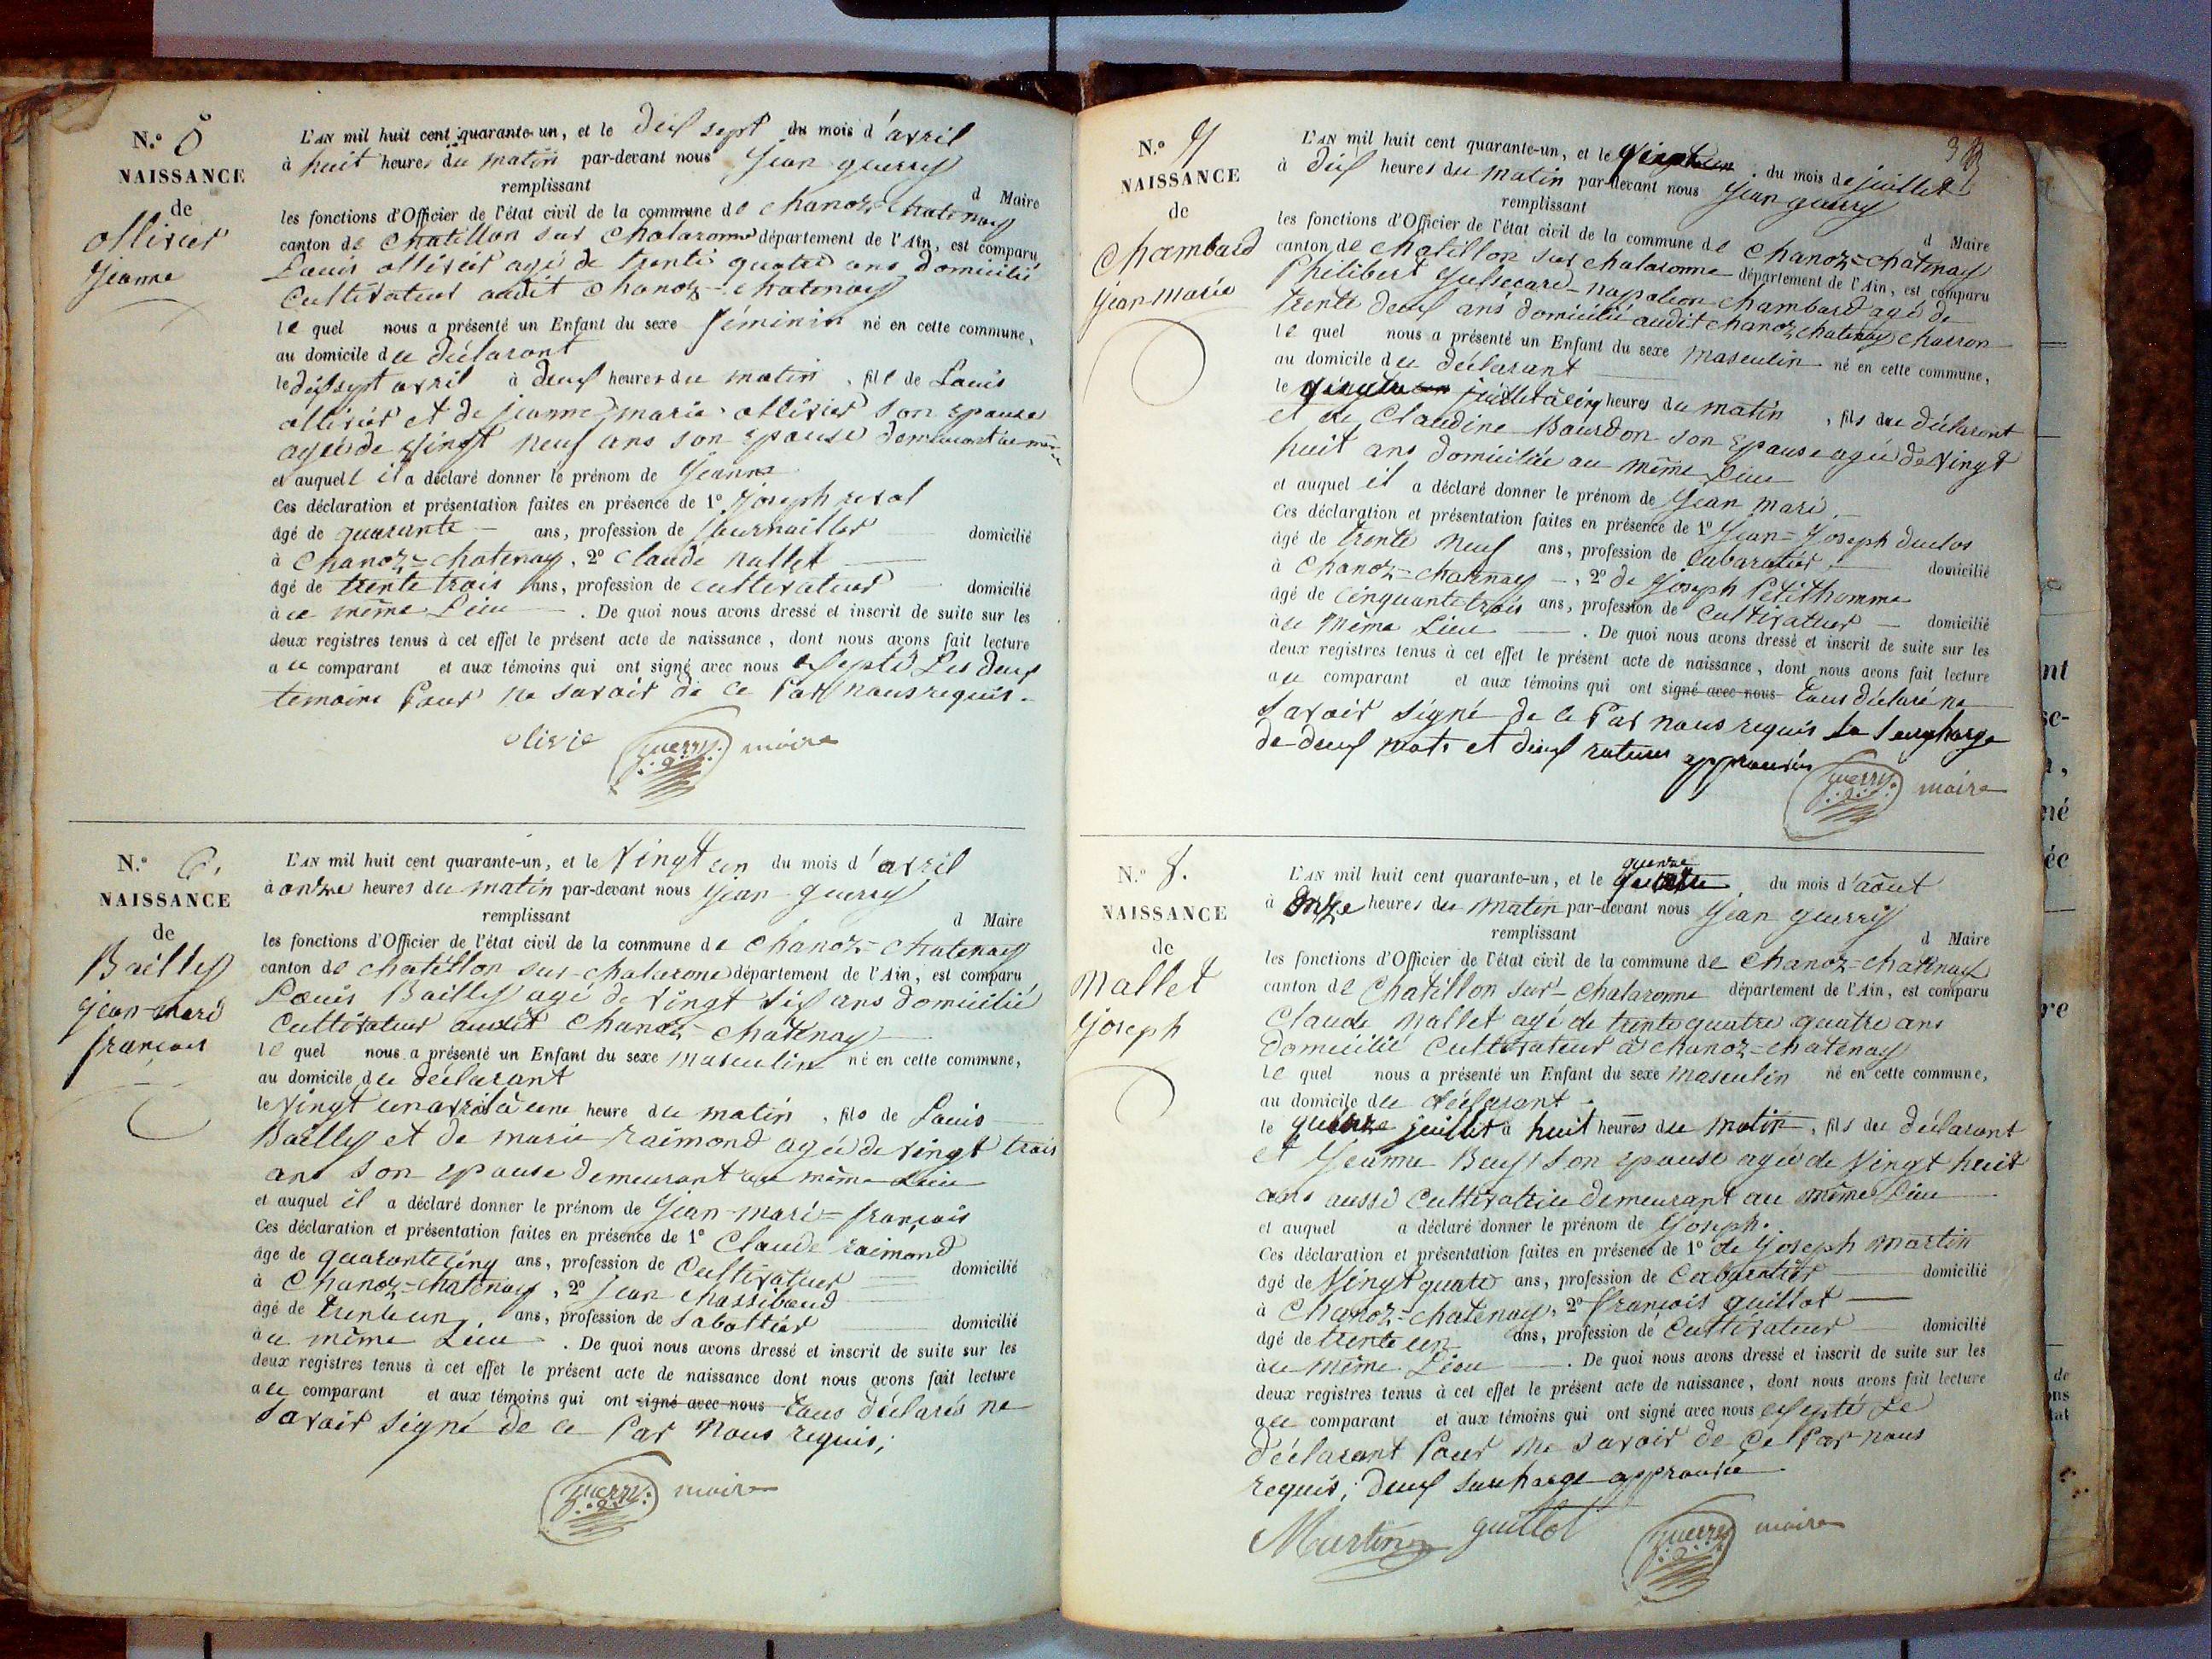 N.° 5
NAISSANCE
de
ollivier
jeanne
L'AN mil huit cent quarante-un, et le dix sept du mois d'avril
à huit heures du matin par-devant nous Jean guerry
remplissant d Maire
les fonctions d'Officier de l'état civil de la commune de Chanoz-Chatenay
canton de Chatillon sur Chalaronne département de l'Ain, est comparu
Louis ollivier agé de trente quatre ans domicilié
Cultivateur audit Chanoz-Chatenay
le quel nous a présenté un Enfant du sexe féminin né en cette commune,
au domicile du déclarant
le dix sept avril à deux heures du matin, fille de Louis
ollivier et de jeanne marie ollivier son epouse
agée de vingt neuf ans son epouse demeurant au même
et auquell il a déclaré donner le prénom de Jeanne
Ces déclaration et présentation faites en présence de 1° Joseph
âgé de quarante ans, profession de journaillier domicilié
à Chanoz-Chatenay, 2° Claude Mallet
âgé de trente trois ans, profession de cultivateur domicilié
à ce même Lieu. De quoi nous avons dressé et inscrit de suite sur les
deux registres tenus à cet effet le présent acte de naissance, dont nous avons fait lecture
a u comparant et aux témoins qui ont signé avec nous exepté Les deux
temoins Pour ne savoir de ce Par nous requis.
olivie guerry maire
N.° 6.
NAISSANCE
de
Bailly
jean-marie
françois
L'AN mil huit cent quarante-un, et le vingt un du mois d'avril
à onze heures du matin par-devant nous Jean guerry
remplissant d Maire
les fonctions d'Officier de l'état civil de la commune de Chanoz-Chatenay
canton de Chatillon sur-chalarone département de l'Ain, est comparu
Louis Bailly agé de vingt six ans domicilié
Cultivateur audit Chanoz-Chatenay
le quel nous a présenté un Enfant du sexe masculin né en cette commune,
au domicile du déclarant
le vingt un avril à une heure du matin, fils de Louis
Bailly et de marie raimond agée de vingt trois
ans son epouse demeurant au même Lieu
et auquel il a déclaré donner le prénom de Jean-marie-françois
Ces déclaration et présentation faites en présence de 1° Claude raimond
âgé de quarante cinq ans, profession de Cultivateur domicilié
à Chanoz-Chatenay, 2° Jean Chassiboud
âgé de trente un ans, profession de Sabottier domicilié
au même Lieu. De quoi nous avons dressé et inscrit de suite sur les
deux registres tenus à cet effet le présent acte de naissance dont nous avons fait lecture
a u comparant et aux témoins qui ont signé avec nous tous déclarés ne
savoir signé de ce Par nous requis;
guerry maire
N.° 7
NAISSANCE
de
Chambard
Jean-marie
L'AN mil huit cent quarante-un, et le du mois de juillet
à dix heures du matin par-devant nous Jean guerry
remplissant d Maire
les fonctions d'Officier de l'état civil de la commune de Chanoz-Chatenay
canton de Chatillon sur chalaronne département de l'Ain, est comparu
Philibert napoleon Chambard agé de
trente deux ans domicilié audit Chanoz Chatenay charron
le quel nous a présenté un Enfant du sexe masculin né en cette commune,
au domicile du déclarant
le juillet à cinq heures du matin, fils du déclarant
et de Claudine Bourdon son epouse agée de vingt
huit ans domiciliée au même Lieu
et auquel il a déclaré donner le prénom de Jean marie.
Ces déclaration et présentation faites en présence de 1° Jean-Joseph duclos
âgé de trente neuf ans, profession de Cabaratier domicilié
à Chanoz-Chatenay, 2° de Joseph Petithomme
âgé de cinquante trois ans, profession de Cultivateur domicilié
à ce même Lieu. De quoi nous avons dressé et inscrit de suite sur les
deux registres tenus à cet effet le présent acte de naissance, dont nous avons fait lecture
au comparant et aux témoins qui ont signé avec nous tous déclaré ne
savoir signé de ce Par nous requis la surcharge
de deux mots et deux ratures approuvés
guerry maire
N.° 8.
NAISSANCE
de
Mallet
joseph
quinze
L'AN mil huit cent quarante-un, et le du mois d'aout
à onze heures du matin par-devant nous Jean guerry
remplissant d Maire
les fonctions d'Officier de l'état civil de la commune de Chanoz-Chatenay
canton de Chatillon sur-Chalaronne département de l'Ain, est comparu
Claude Mallet agé de trente quatre quatre ans
domicilié Cultivateur à Chanoz-Chatenay
le quel nous a présenté un Enfant du sexe masculin né en cette commune,
au domicile du déclarant
le quinze juillet à huit heures du matin, fils du déclarant
et Jeanne son epouse agée de vingt huit
ans aussi Cultivatrice demeurant au même Lieu
et auquel a déclaré donner le prénom de Joseph.
Ces déclaration et présentation faites en présence de 1° de Joseph martin
âgé de vingt quatre ans, profession de domicilié
à Chanoz-Chatenay, 2° François guillot
âgé de trente un ans, profession de Cultivateur domicilié
au même Lieu. De quoi nous avons dressé et inscrit de suite sur les
deux registres tenus à cet effet le présent acte de naissance, dont nous avons fait lecture
au comparant et aux témoins qui ont signé avec nous exepté Le
déclarant Pour ne savoir de ce Par nous
requis; deux surcharge approuvée
Martin guillot guerry maire